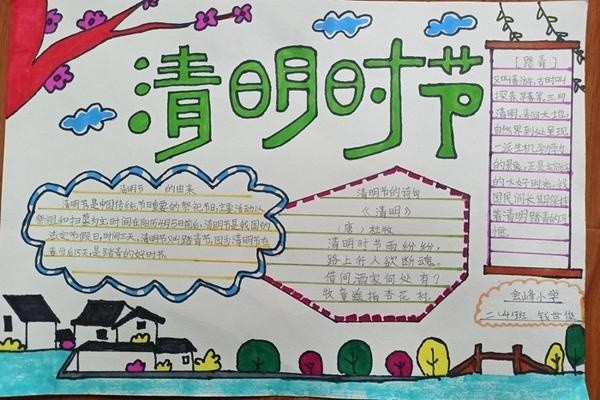 清明时节
清明节 的由来
清明节是中国传统节日重要的祭祀节日,主要活动以
祭祖和扫墓为主,时间在阳历4月5日前后,清明节是我国的
法定节假日,时间三天,清明节又叫踏青节,因为清明节在
春分后15天,是踏青的好时节。
清明节的诗句
《清明》
(唐) 杜牧
清明时节雨纷纷,
路上行人欲断魂。
借问酒家何处有?
牧童遥指杏花村。
[踏青]
又叫春游,古时叫
探春、寻春等,三月
清明,春回大地,
自然界到处呈现
一派生机
的景象,正是
的大好时光。我
国民间长期保持
着清明踏青的习
惯。
会峰小学
二(4)班 钱世俊